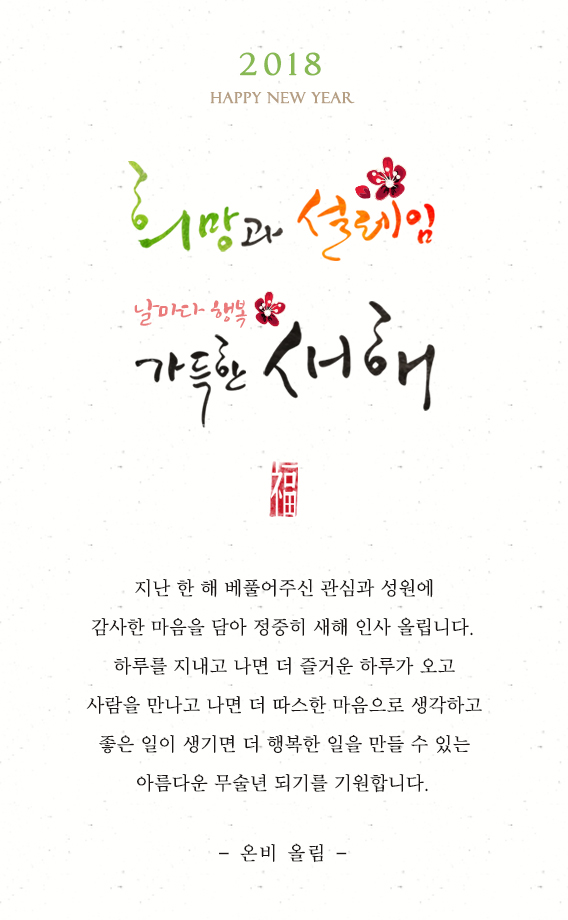 2018
HAPPY NEW YEAR
희망과 설레임
날마다 행복
가득한 새해
福
지난 한 해 베풀어주신 관심과 성원에
감사한 마음을 담아 정중히 새해 인사 올립니다.
하루를 지내고 나면 더 즐거운 하루가 오고
사람을 만나고 나면 더 따스한 마음으로 생각하고
좋은 일이 생기면 더 행복한 일을 만들 수 있는
아름다운 무술년 되기를 기원합니다.
– 온비 올림 –